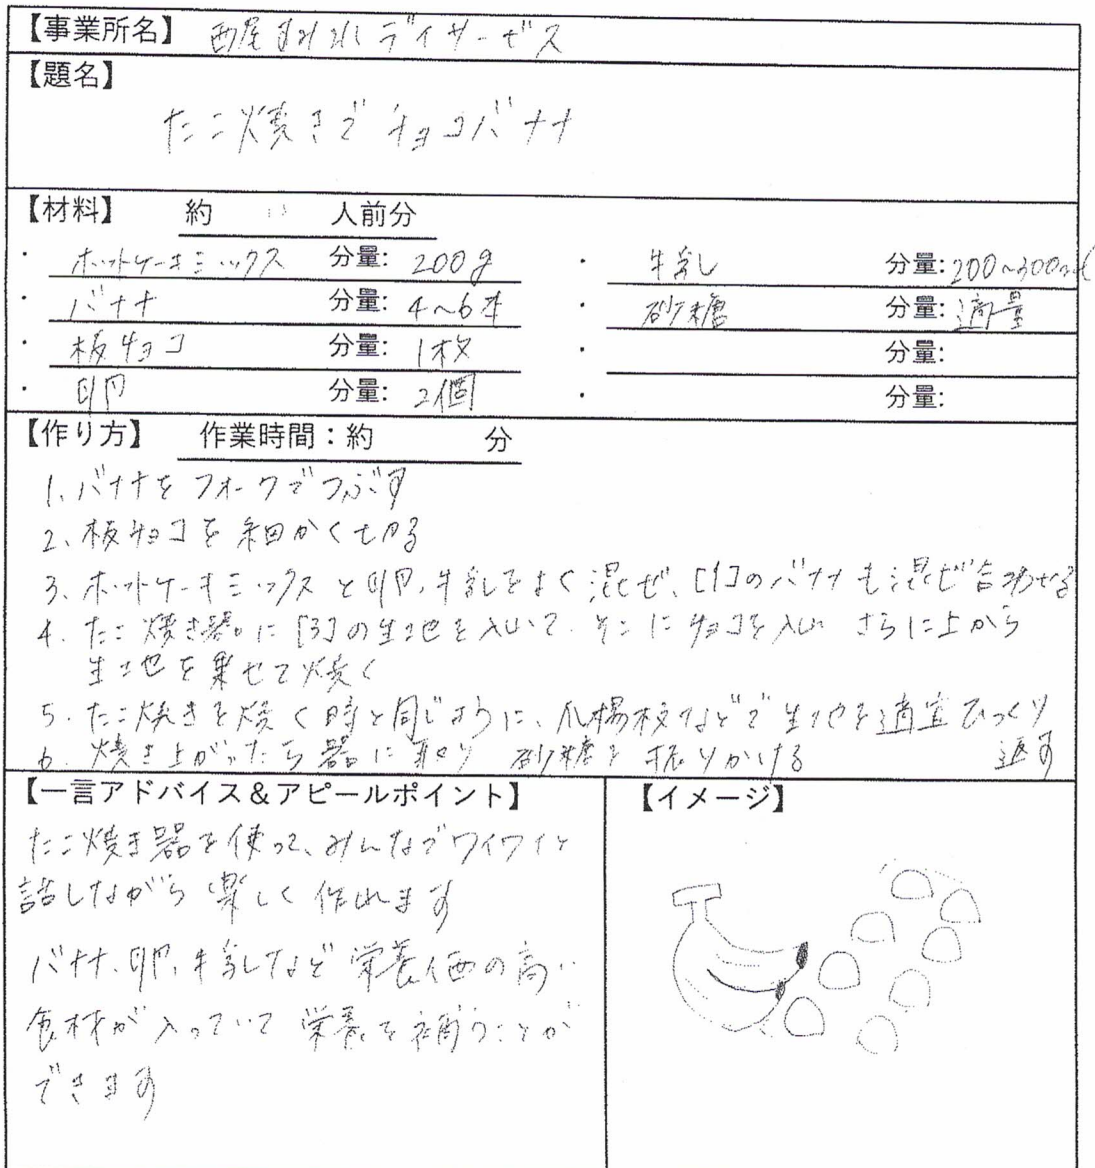 【事業所名】 西尾すみれデイサービス
【題名】
たこ焼きでチョコバナナ
【材料】 約 人前分
・ ホットケーキミックス 分量: 200g ・ 牛乳 分量: 200~300ml
・ バナナ 分量: 4~6本 ・ 砂糖 分量: 適量
・ 板チョコ 分量: 1枚 ・ 分量:
・ 卵 分量: 2個 ・ 分量:
【作り方】 作業時間:約 分
1、バナナをフォークでつぶす
2、板チョコを細かく切る
3、ホットケーキミックスと卵、牛乳をよく混ぜ、[1]のバナナも混ぜ合わせる
4. たこ焼き器に[3]の生地を入れて、そこにチョコを入れ さらに上から
生地を乗せて焼く
5. たこ焼きを焼く時と同じように、爪楊枝などで生地を適宜ひっくり
返す
6. 焼き上がったら器に取り 砂糖を振りかける
【一言アドバイス&アピールポイント】
たこ焼き器を使って、みんなでワイワイと
話しながら楽しく作れます
バナナ、卵、牛乳など栄養価の高い
食材が入っていて栄養を補うことが
できます
【イメージ】